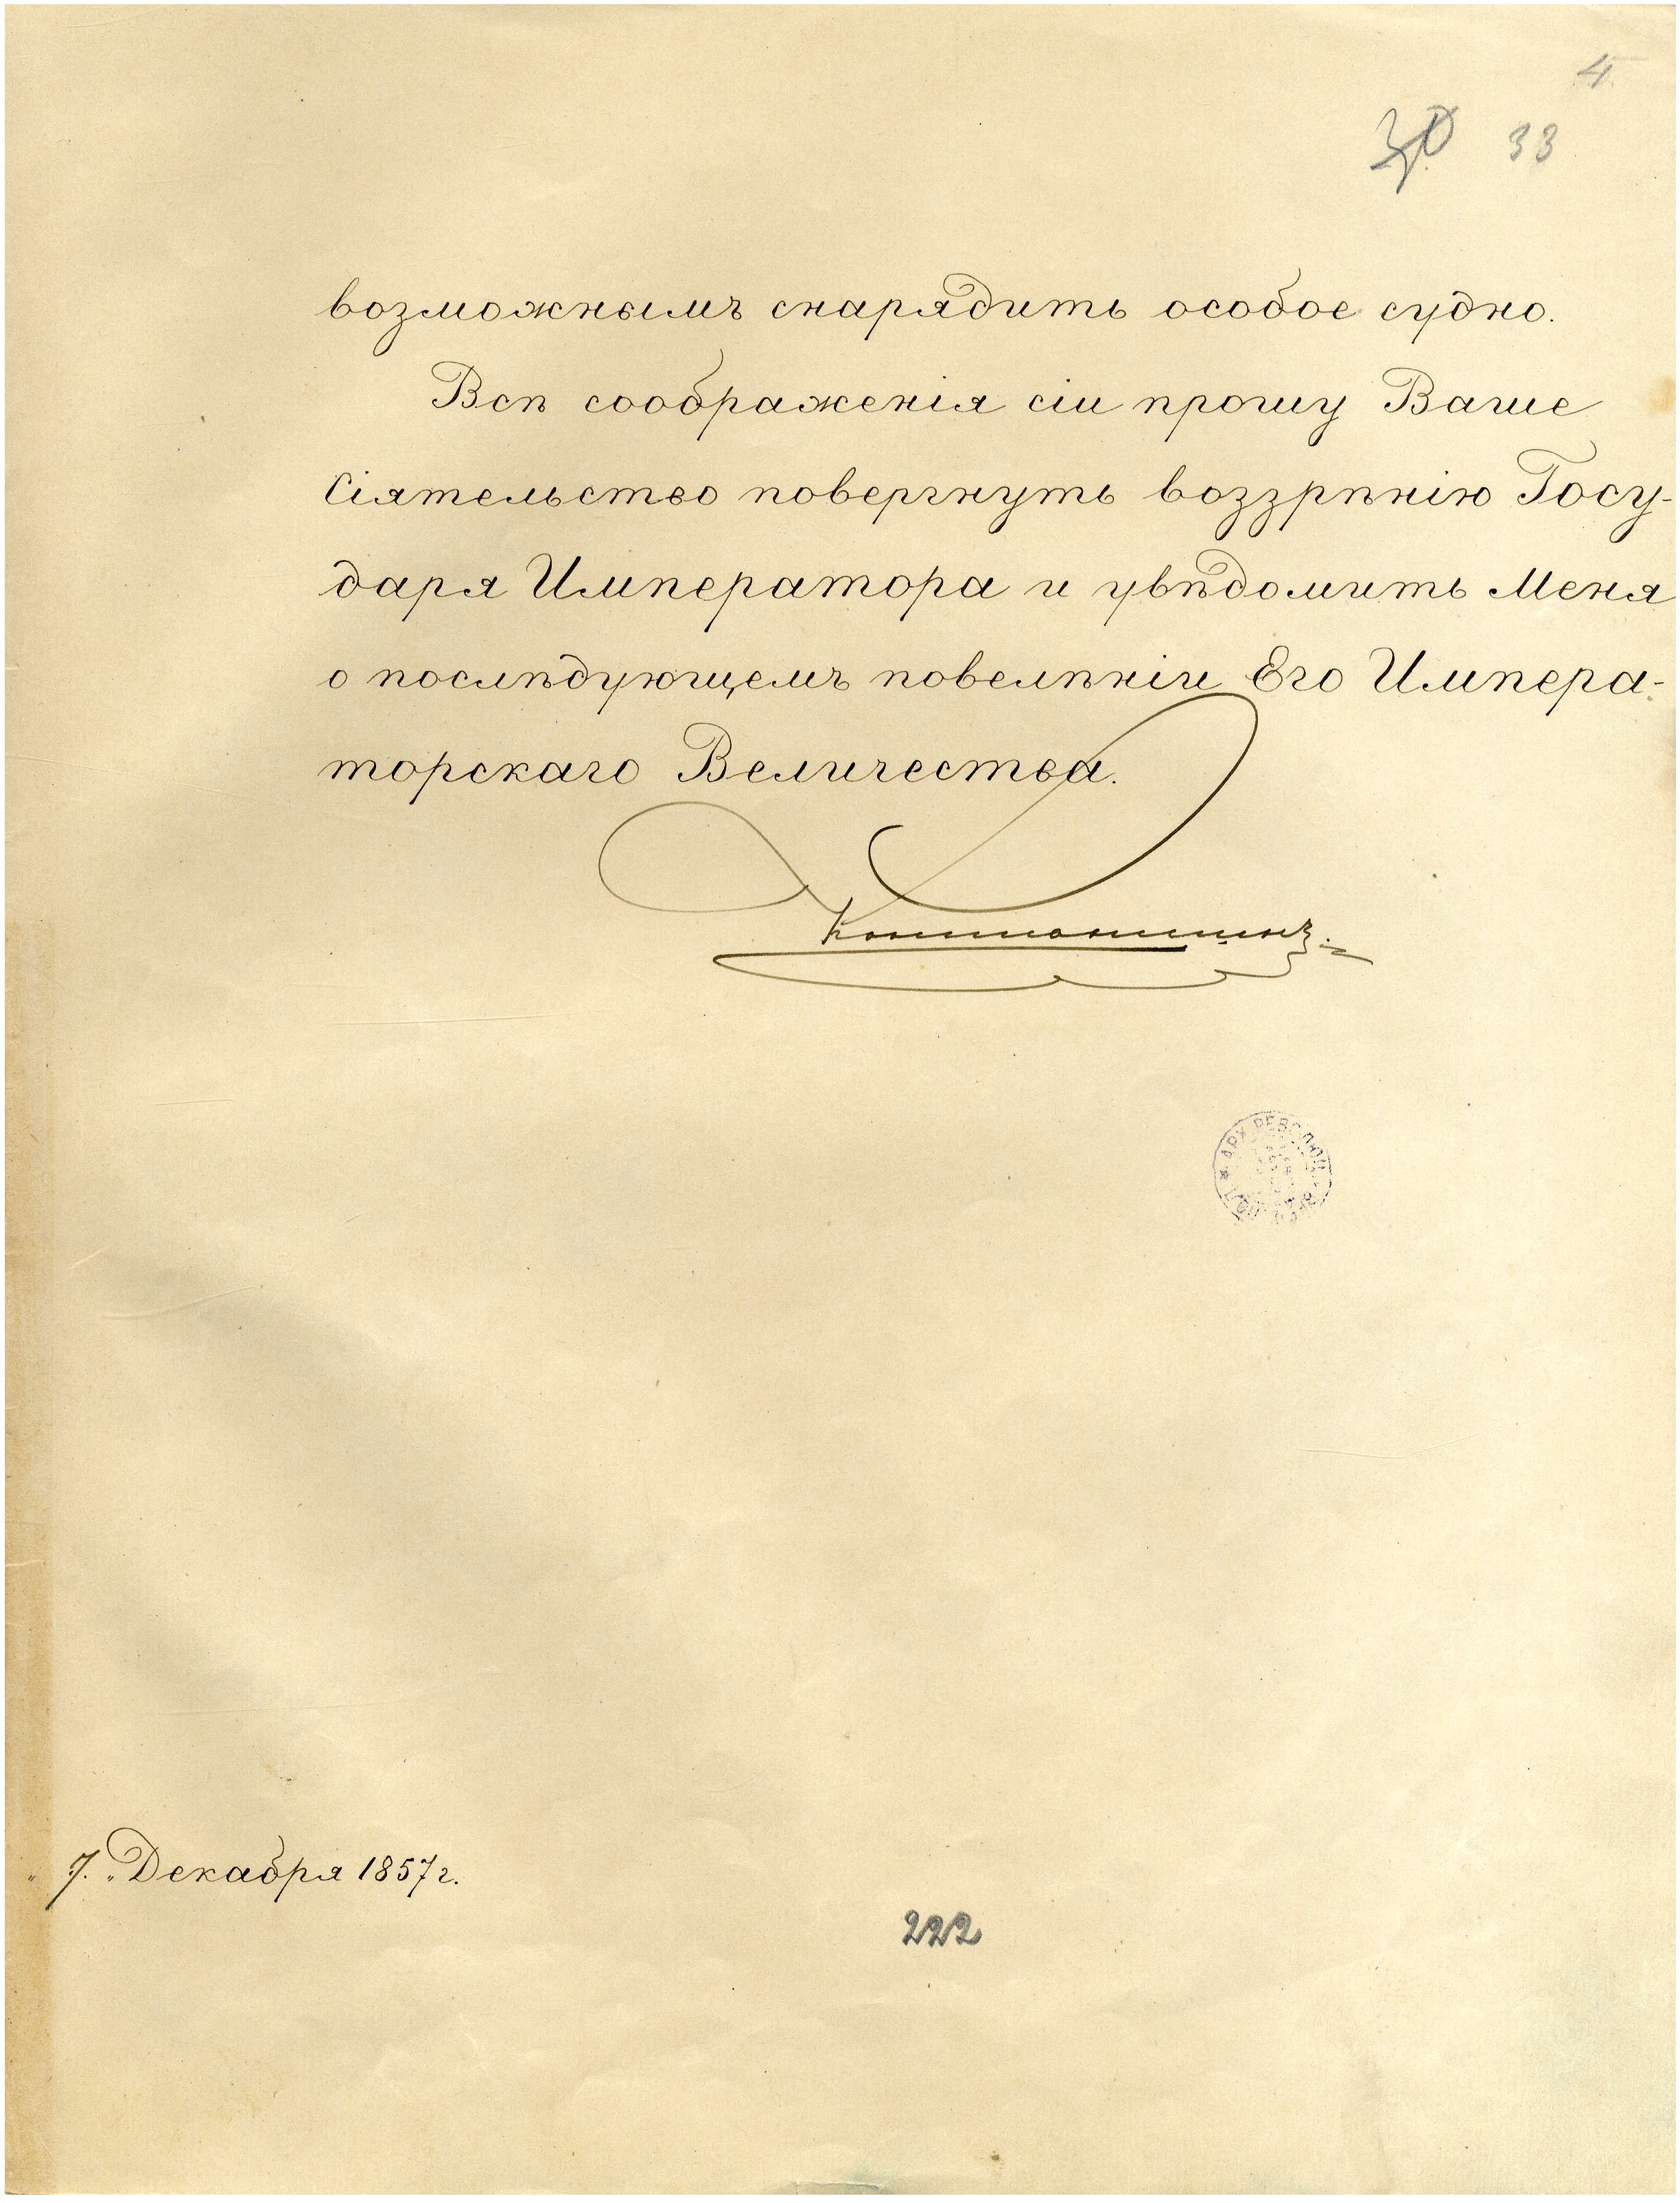 4
30 33
возможнымъ снарядить особое судно.
Всѣ соображенія сіи прошу Ваше
Сіятельство повергнуть воззрѣнію Госу-
даря Императора и увѣдомить Меня
о послѣдующемъ повелѣніи Его Импера-
торскаго Величества.
Константинъ.
АРХ. РЕВОЛЮЦ
„7.„ Декабря 1857 г.
222